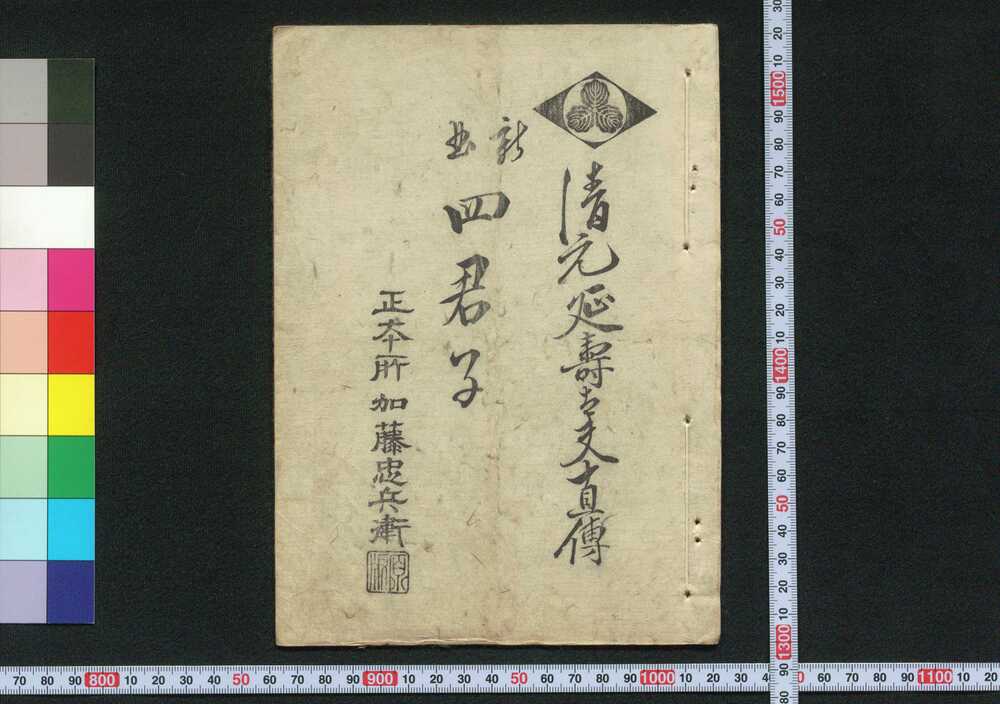 清元延壽太夫直傳
新曲
四君子
正本所 加藤忠兵衛
原板
70 80 90 800 10 20 30 40 50 60 70 80 90 900 10 20 30 40 50 60 70 80 90 1000 10 20 30 40 50 60 70 80 90 1100 10 20
30 20 10 1500 90 80 70 60 50 40 30 20 10 1400 90 80 70 60 50 40 30 20 10 1300 90 80